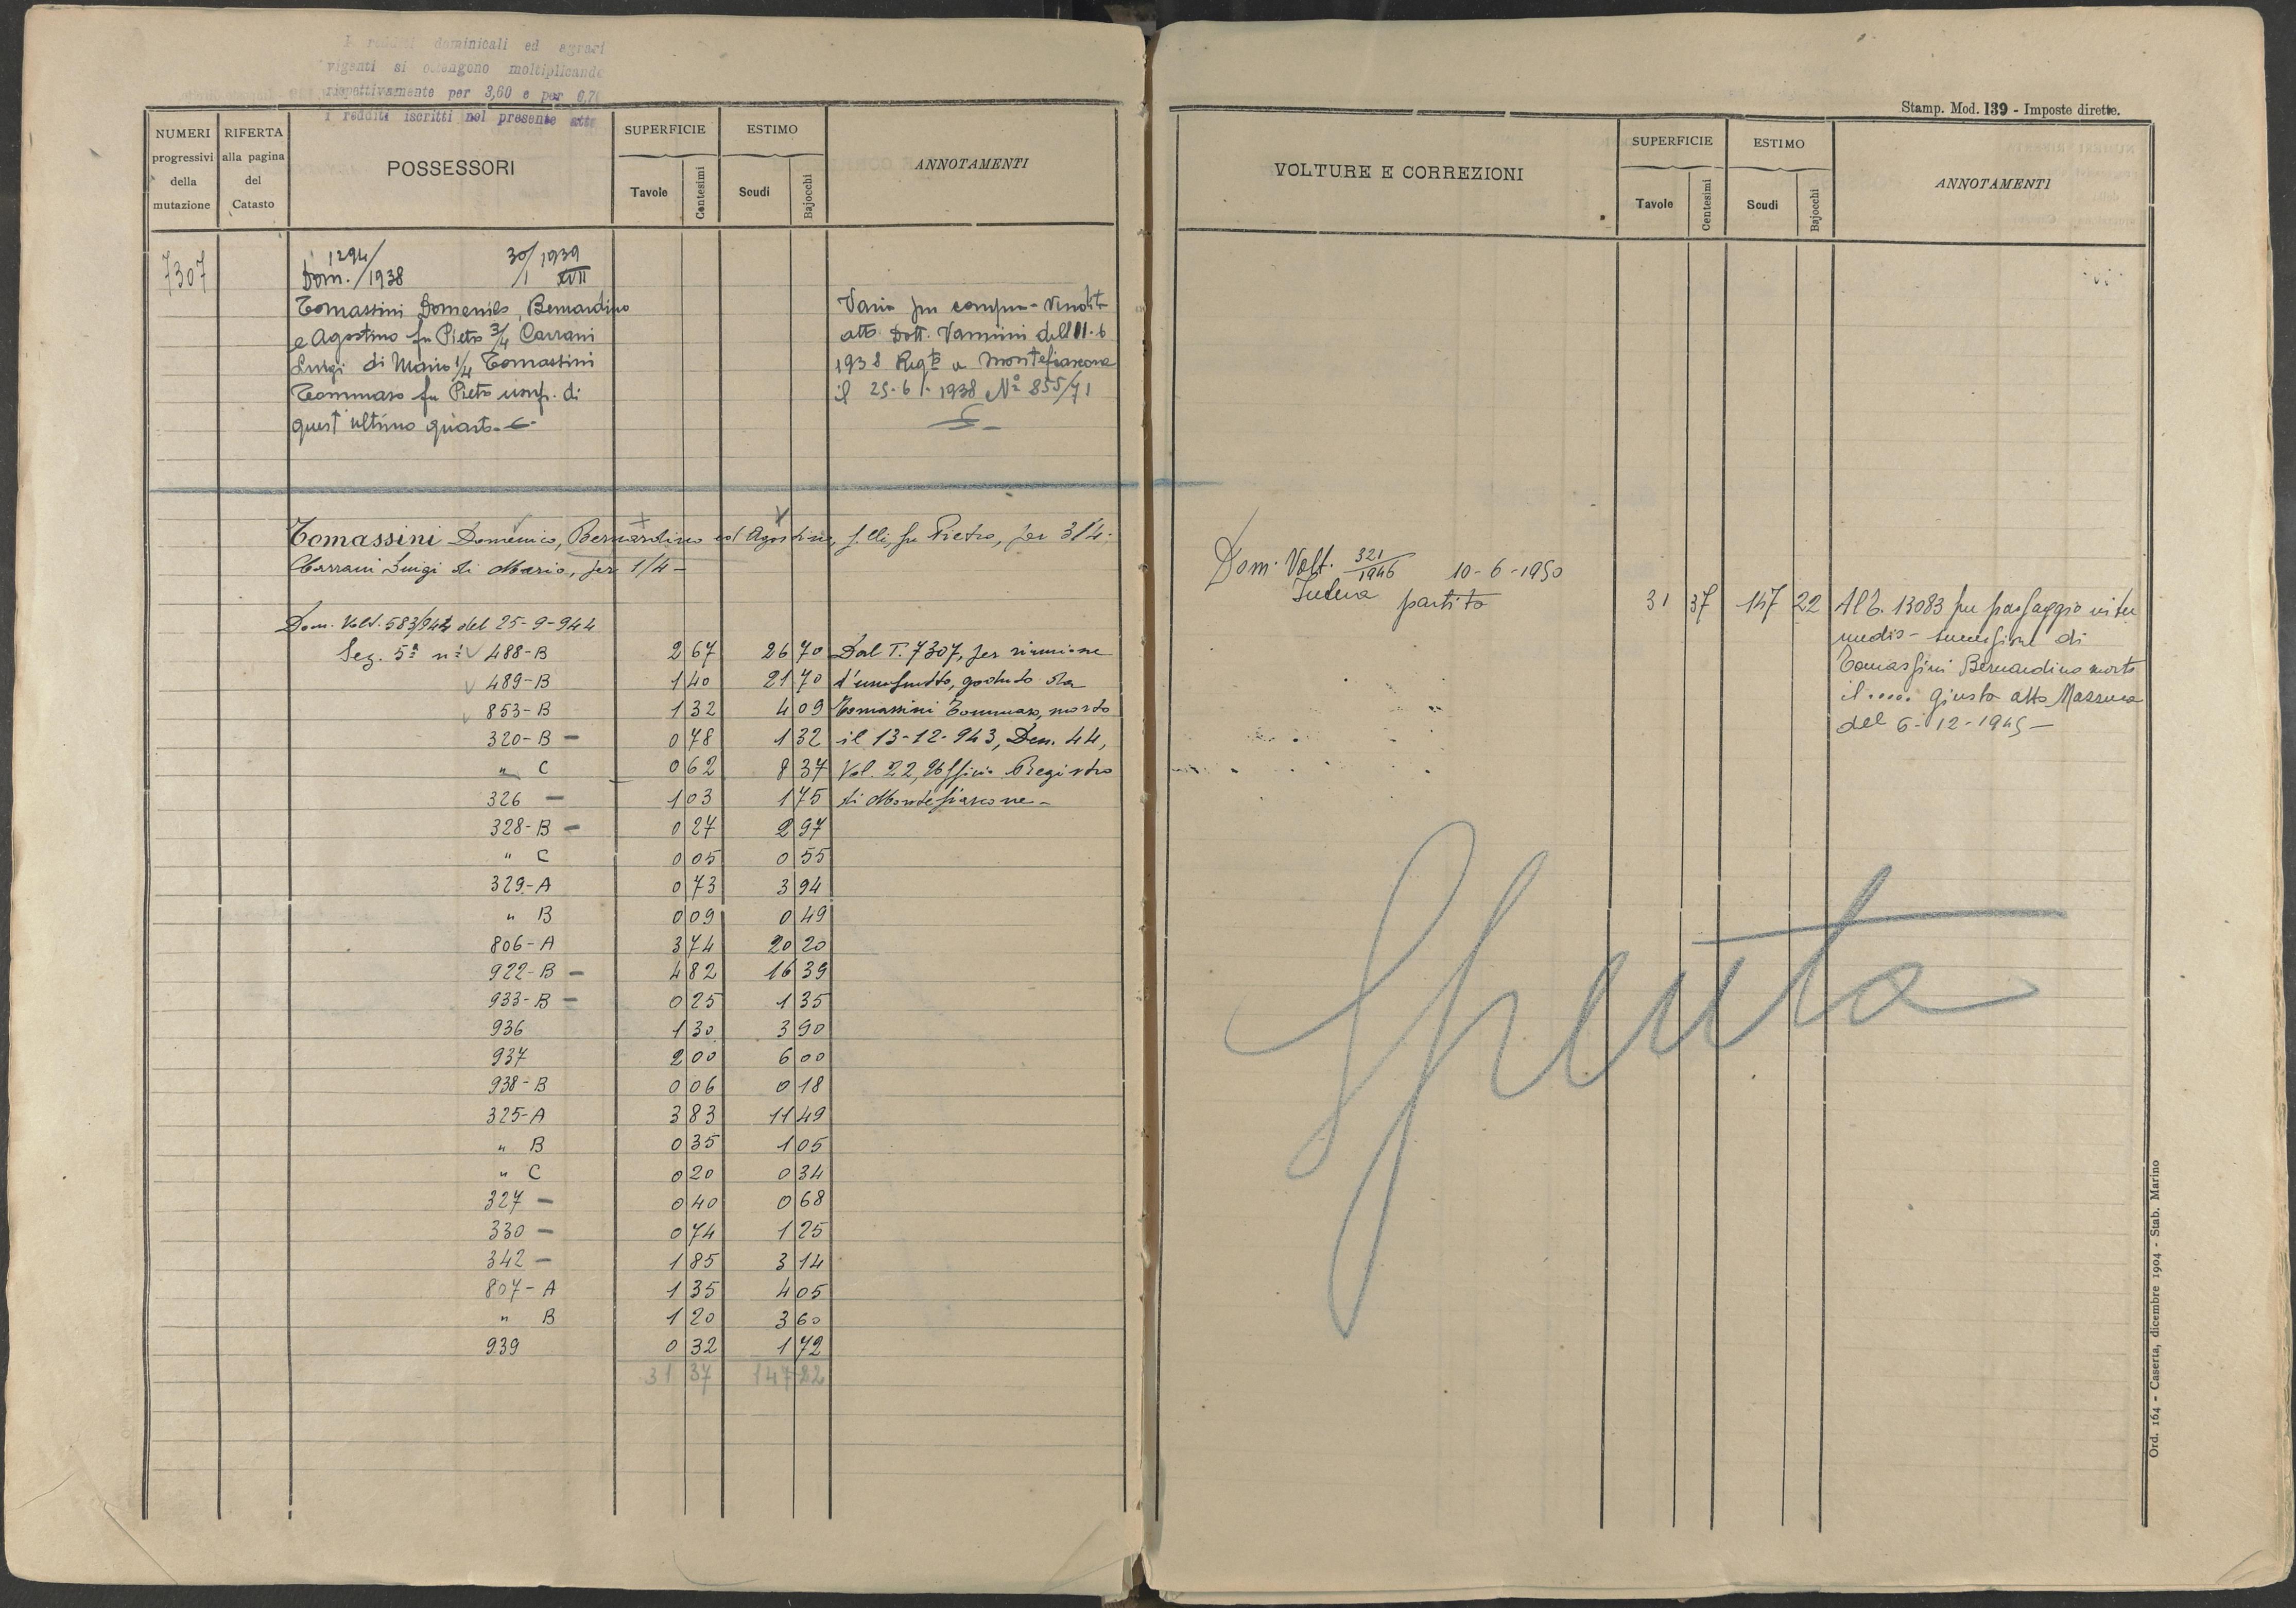 I redditi dominicali ed agrari
vigenti si ottengono moltiplicando
rispettivamente per 3,60 e per 0,70
i redditi iscritti nel presente atto
NUMERI progressivi della mutazione
RIFERTA alla pagina del Catasto
POSSESSORI
SUPERFICIE
Tavole Centesimi
ESTIMO
Scudi Bajocchi
ANNOTAMENTI
7307
Dom. 1294/1938 30/1 1939 XVII
Tomassini Domenico, Bernardino
e Agostino fu Pietro 3/4 Carrani
Luigi di Mario 1/4 Tomassini
Tommaso fu Pietro usuf. di
quest'ultimo quarto
Varia per compra-vendita
atto Dott. Vannini dell'11-6
1938 Reg.to a Montefiascone
il 25-6-1938 N° 855/71
Tomassini Domenico, Bernardino ed Agostino, f.lli, fu Pietro, per 3/4;
Carrani Luigi di Mario, per 1/4 -
Dom. Volt. 583/944 del 25-9-944
Sez. 5ª nⁱ 488-B 2 67 26 70 Dal T. 7307, per riunione
489-B 1 40 21 70 d'usufrutto, goduto da
853-B 1 32 4 09 Tomassini Tommaso, morto
320-B - 0 78 1 32 il 13-12-943, Den. 44,
" C 0 62 8 37 Vol. 22, Ufficio Registro
326 - 1 03 1 75 di Montefiascone -
328-B - 0 27 2 97
" C 0 05 0 55
329-A 0 73 3 94
" B 0 09 0 49
806-A 3 74 20 20
922-B - 4 82 16 39
933-B - 0 25 1 35
936 1 30 3 90
937 2 00 6 00
938-B 0 06 0 18
325-A 3 83 11 49
" B 0 35 1 05
" C 0 20 0 34
327 - 0 40 0 68
330 - 0 74 1 25
342 - 1 85 3 14
807-A 1 35 4 05
" B 1 20 3 60
939 0 32 1 72
31 37 147 22
Stamp. Mod. 139 - Imposte dirette.
VOLTURE E CORREZIONI
SUPERFICIE
Tavole Centesimi
ESTIMO
Scudi Bajocchi
ANNOTAMENTI
Dom. Volt. 321/1946 10-6-1950
Intera partita 31 37 147 22
Al T. 13083 per passaggio inter
medio - successione di
Tomassini Bernardino morto
il .... giusta atto
del 6-12-1945 -
Spenta
Ord. 164 - Caserta, dicembre 1904 - Stab. Marino